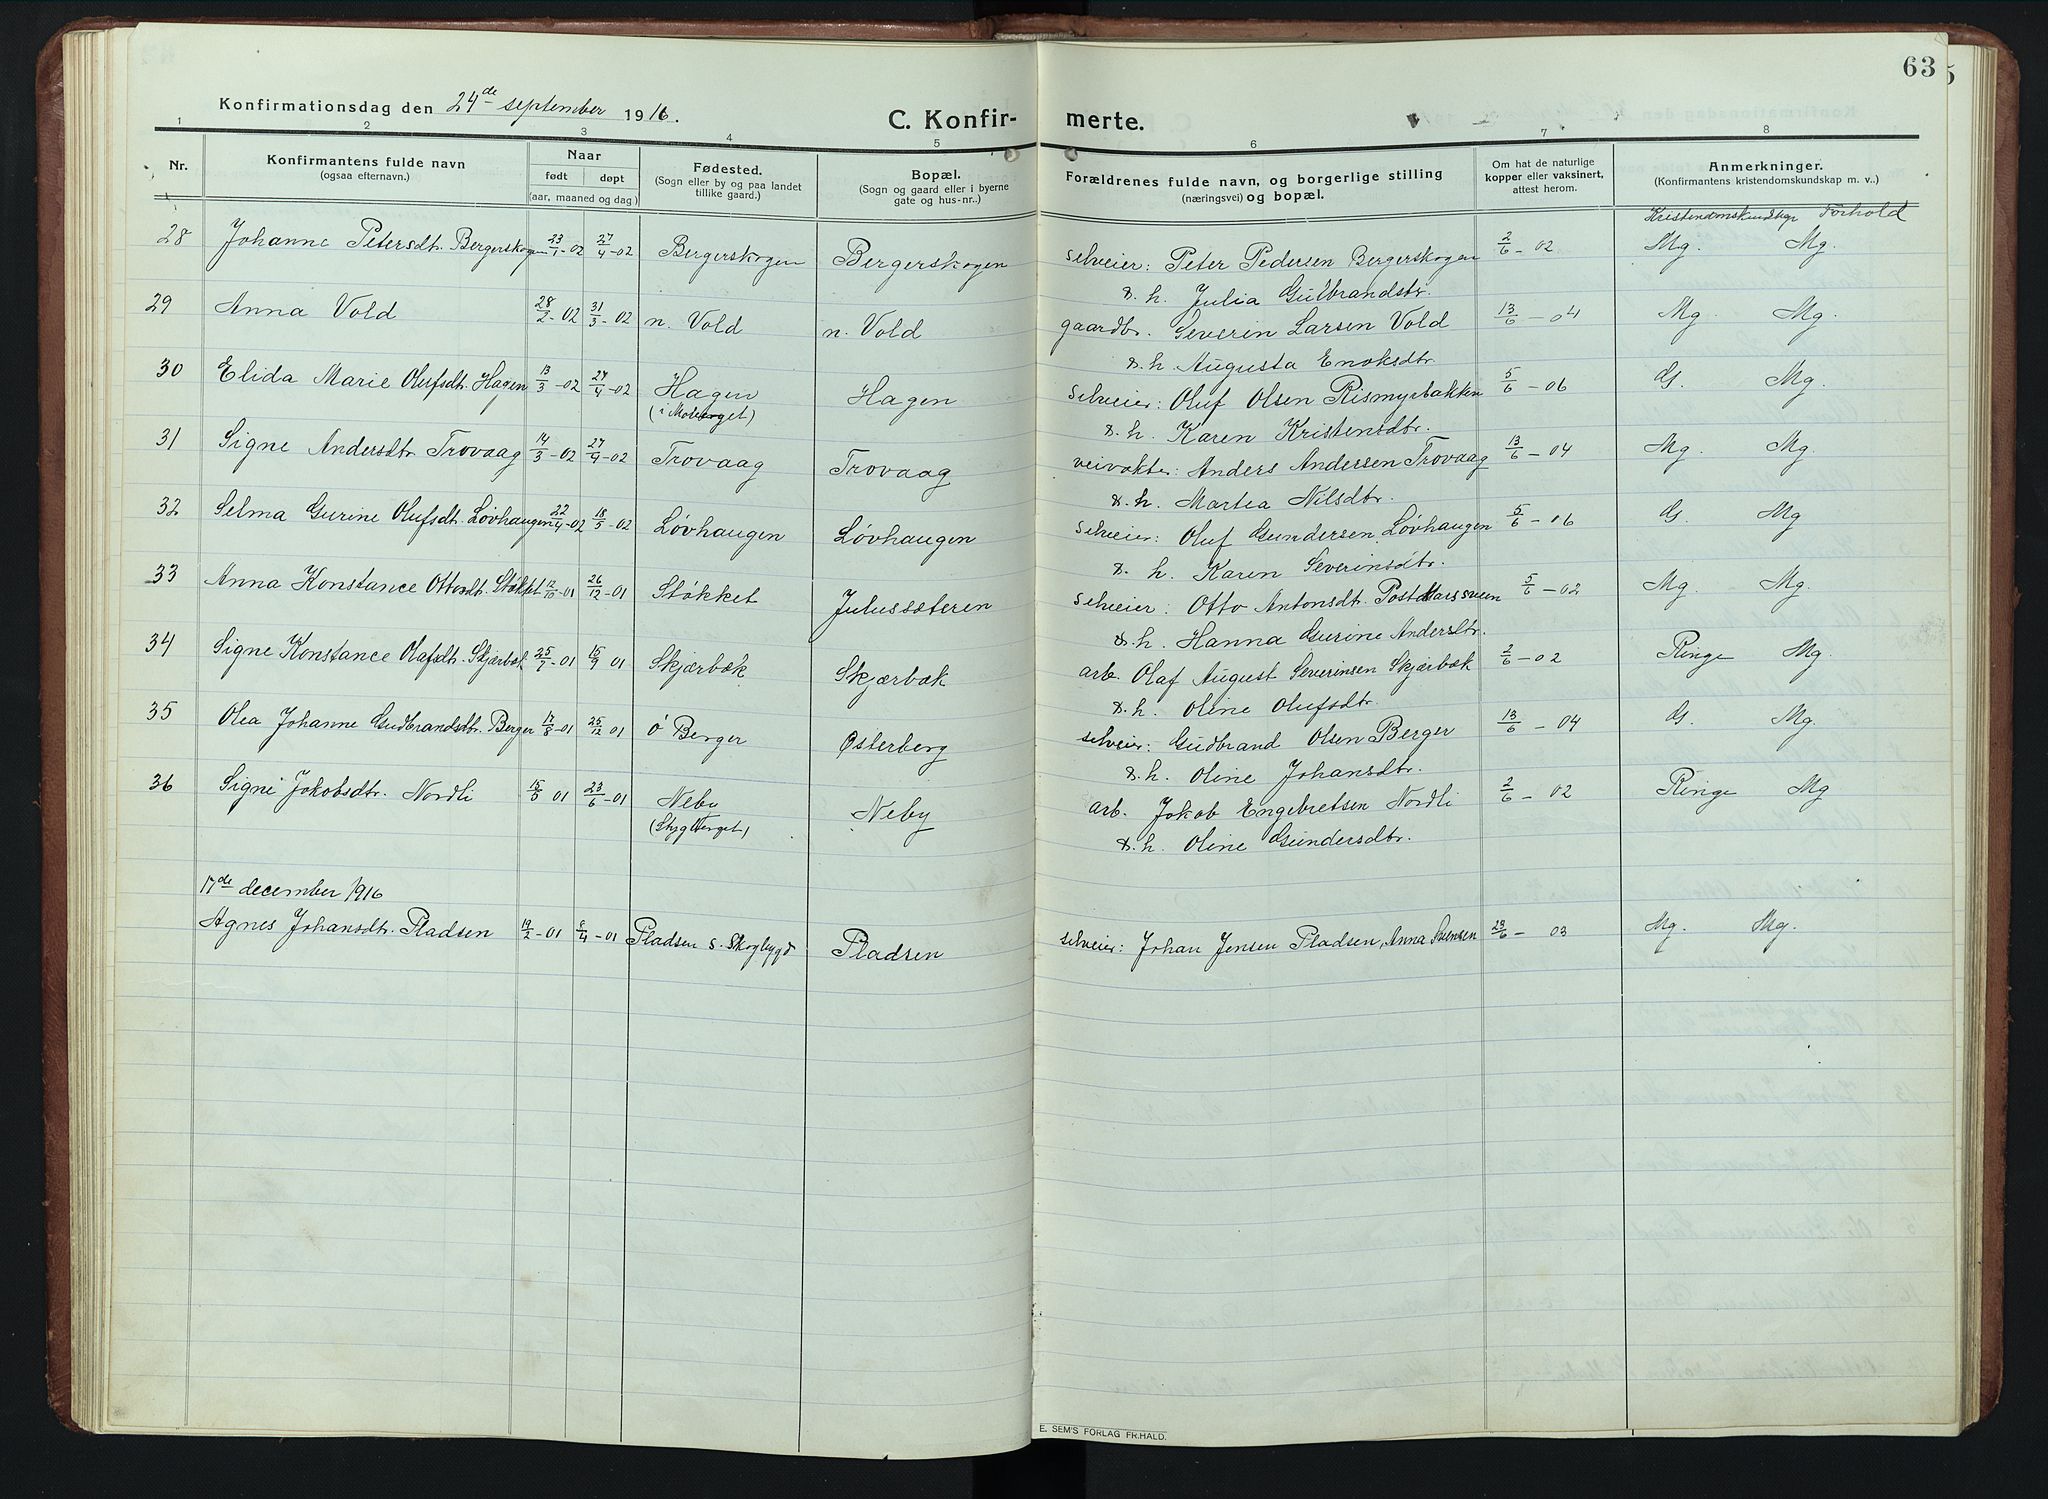 Konfirmationsdag den 24de september 1916.
C. Konfir-
merte.
63
5
1 2 3 4 5 6 7 8
Nr.
Konfirmantens fulde navn
(ogsaa efternavn.)
Naar
født døpt
(aar, maaned og dag)
Fødested.
(Sogn eller by og paa landet
tillike gaard.)
Bopæl.
(Sogn og gaard eller i byerne
gate og hus-nr..)
Forældrenes fulde navn, og borgerlige stilling
(næringsvei) og bopæl.
Om hat de naturlige
kopper eller vaksinert,
attest herom.
Anmerkninger.
(Konfirmantens kristendomskundskap m. v..)
Kristendomskundskap Forhold
28 Johanne Petersdtr. Bergerskogen 23/1-02 27/4-02 Bergerskogen Bergerskogen selveier: Peter Pedersen Bergerskogen 2/6-02 Mg. Mg.
& h. Julia Gulbrandsdtr.
29 Anna Vold 28/2-02 31/3-02 n. Vold n. Vold gaardbr. Severin Larsen Vold 13/6-04 Mg. Mg.
& h. Augusta Enoksdtr.
30 Elida Marie Olufsdt. Hagen 13/3-02 27/4-02 Hagen Hagen selveier: Oluf Olsen Rismyrbakken 5/6-06 G. Mg.
(i Moberget)
& h. Karen Kristensdtr.
31 Signe Andersdtr Trovaag 14/3-02 27/4-02 Trovaag Trovaag veivokter: Anders Andersen Trovaag 13/6-04 Mg. Mg.
& h. Martea Nilsdtr.
32 Selma Gurine Olufsdt. Løvhaugen 22/4-02 18/5-02 Løvhaugen Løvhaugen selveier: Oluf Gundersen Løvhaugen 5/6-06 G. Mg
& h. Karen Severinsdtr.
33 Anna Konstance Ottosdt. Støkket 12/10-01 26/12-01 Støkket Julussæteren selveier: Otto Antonsdt. 5/6-02 Mg. Mg.
& h. Hanna Gurine Andersdtr.
34 Signe Konstance Olafsdt. Skjærbæk 25/7-01 15/9 01 Skjærbæk Skjærbæk arb. Olaf August Severinsen Skjærbæk 2/6-02 Ringe Mg.
& h. Oline Olufsdtr.
35 Olea Johanne Gudbrandsdtr. Berger 17/8-01 25/12 01 ø Berger Østerberg selveier: Gudbrand Olsen Berger 13/6-04 G. Mg.
& h. Oline Johansdtr.
36 Signe Jakobsdtr. Nordli 15/5 01 23/6-01 Neby Neby arb. Jokob Engebretsen Nordli 2/6-02 Ringe Mg
(Skygberget)
& h. Oline Gundersdtr.
17de december 1916
Agnes Johansdtr. Pladsen 19/2-01 8/4-01 Pladsen s. Skogbygd Pladsen selveier: Johan Jensen Pladsen, Anna 03 Mg. Mg.
E. SEM'S FORLAG FR.HALD.